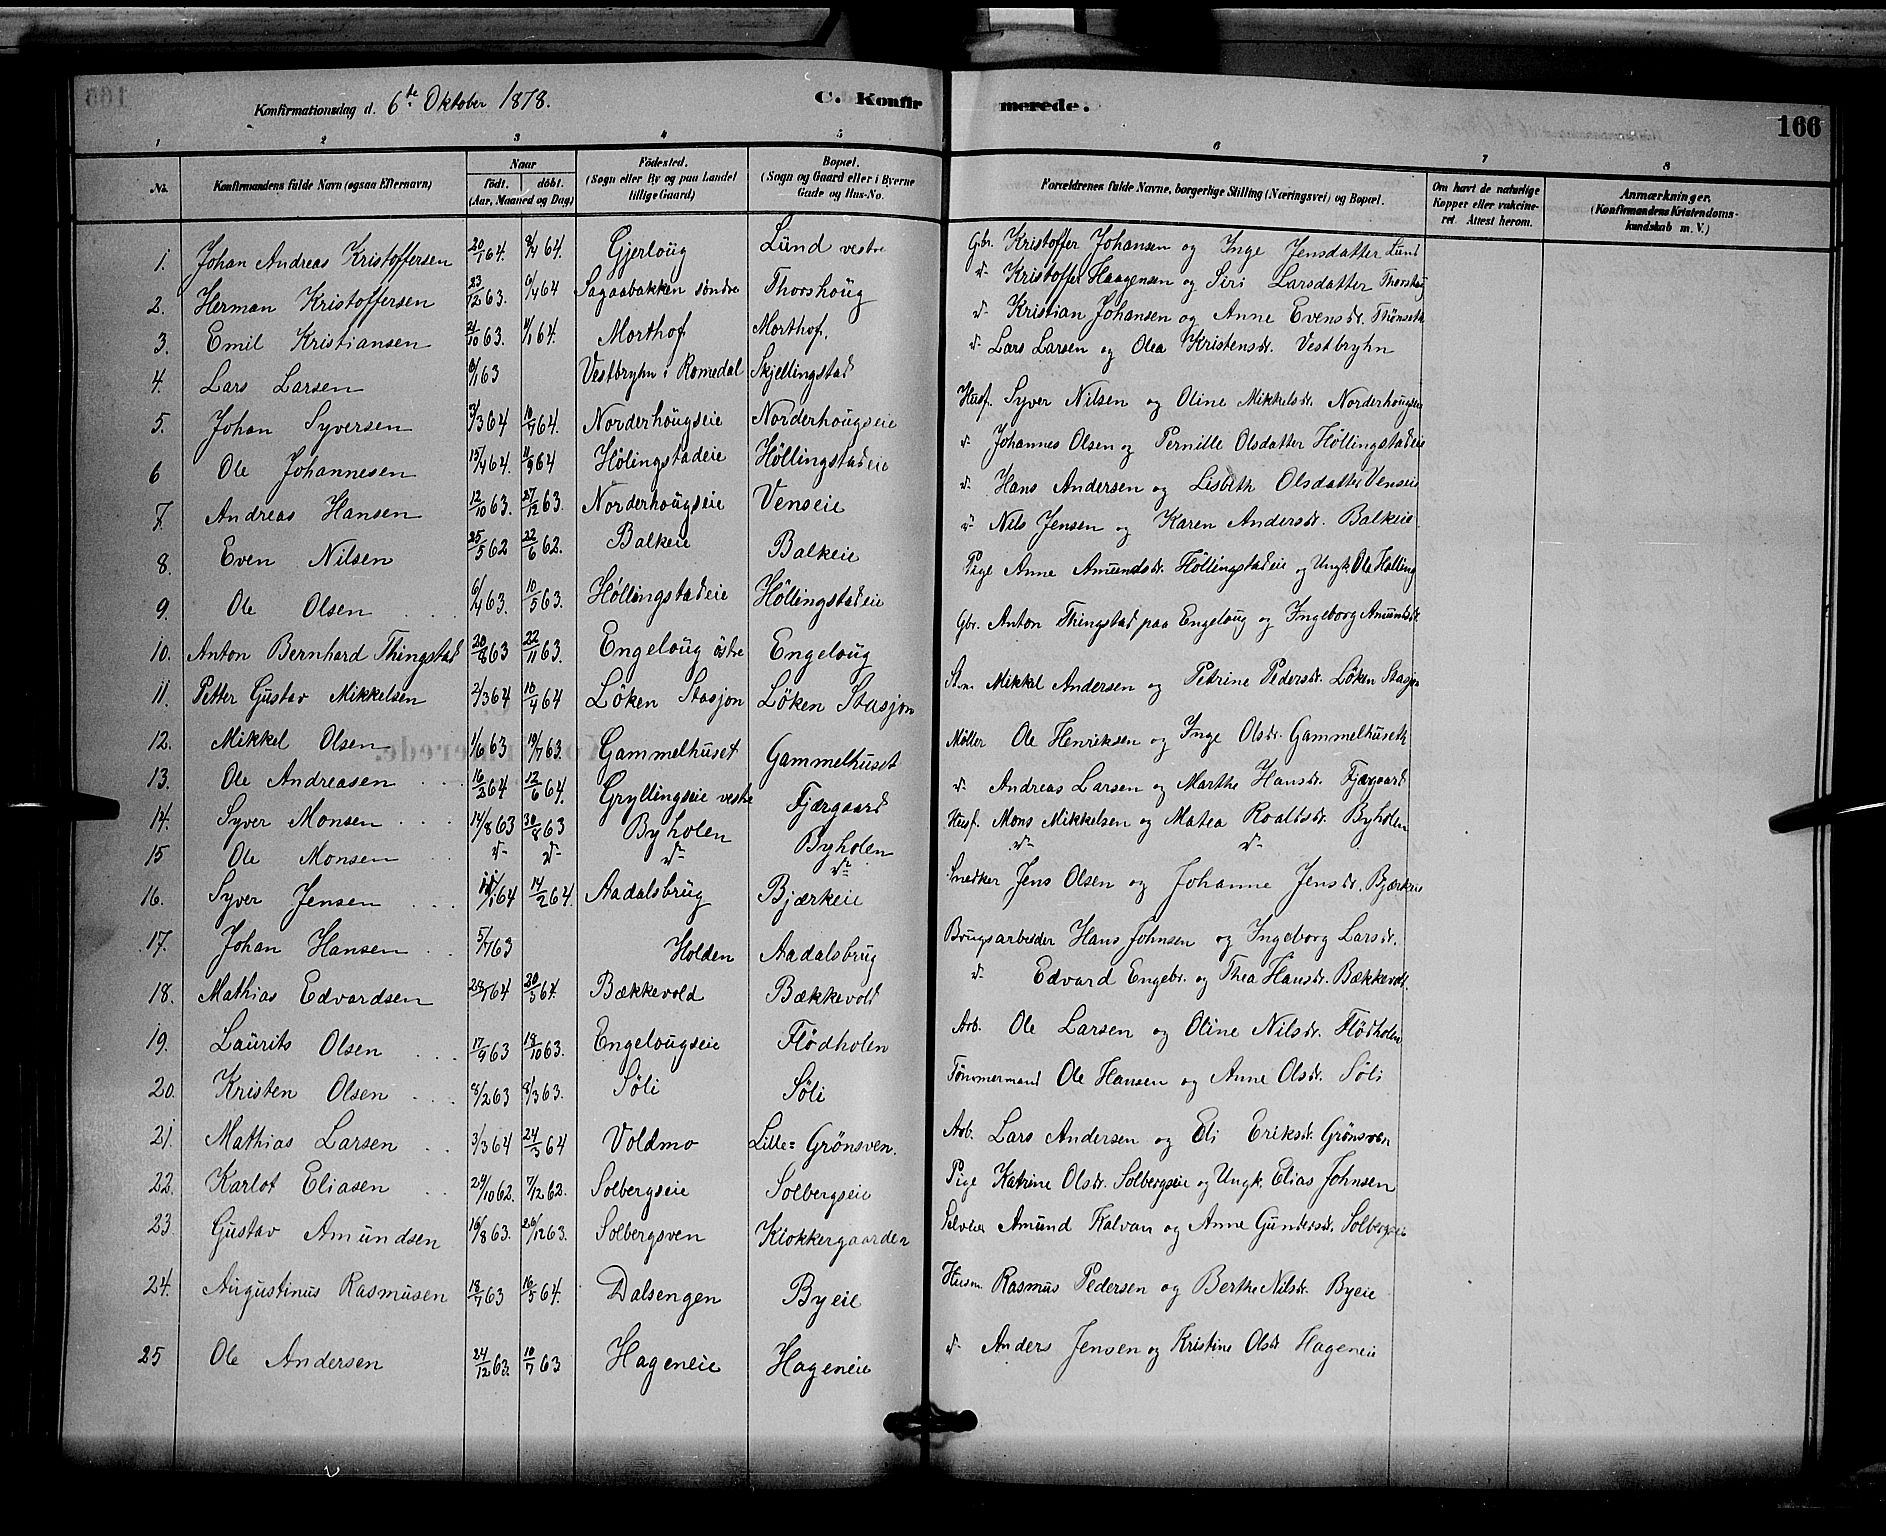 Konfirmationsdag d. 6te Oktober 1878. C. Konfirmerede. 166
1 2 3 4 5 6 7 8
No. Konfirmandens fulde Navn (ogsaa Efternavn) Naar født. døbt. (Aar, Maaned og Dag) Fødested. (Sogn eller By og paa Landet tillige Gaard) Bopæl. (Sogn og Gaard eller i Byerne Gade og Hus-No. Forældrenes fulde Navne, borgerlige Stilling (Næringsvei) og Bopæl. Om havt de naturlige Kopper eller vakcineret. Attest herom. Anmærkninger. (Konfirmandens Kristendomskundskab m. V.)
1. Johan Andreas Kristoffersen 20/1 64. 64. Gjerloug Lund vestre Gbr. Kristoffer Johansen og Inge Jensdatter Lund
2. Herman Kristoffersen 23/12 63. 6/4 64 Sagaabakken søndre Thorshoug d- Kristoffer Haagensen og Siri Larsdatter
3. Emil Kristiansen 63. 64. Morthof Morthof. d- Kristian Johansen og Anne Evensdr.
4. Lars Larsen 63 Vestbryhn i Romedal Skjellingstad d- Lars Larsen og Olea Kristensdr. Vestbryhn
5. Johan Syversen /3 64 10/7 64. Norderhougseie Norderhougseie Husf. Syver Nilsen og Oline Mikkelsdr. Norderhougseie
6 Ole Johannesen 15/4 64. 11/9 64 Hölingstadeie Höllingstadeie d- Johannes Olsen og Pernille Olsdatter Höllingstadeie
7. Andreas Hansen 12/10 63. 27/12 63. Norderhougseie Venseie d- Hans Andersen og Lisbeth Olsdatter Venseie
8. Even Nilsen 25/5 62 22/6 62. Balkeie Balkeie d- Nils Jensen og Karen Andersdr. Balkeie
9. Ole Olsen 6/4 63. 10/5 63. Höllingstadeie Höllingstadeie Pige Anne Amundsdr. Höllingstadeie og Ungk. Ole Hölling
10. Anton Bernhard Thingstad 20/8 63 22/11 63. Engeloug østre Engeloug Gbr. Anton Thingstad paa Engeloug og Ingeborg Amundsdr.
11. Petter Gustav Mikkelsen 2/3 64 10/4 64 Löken Stasjon Löken Stasjon Mikkel Andersen og Petrine Pedersdr. Löken Stasjon
12. Mikkel Olsen 1/6 63 19/7 63. Gammelhuset Gammelhuset Møller Ole Henriksen og Inge Olsdr. Gammelhuseth
13. Ole Andreasen 16/2 64 12/6 64. Gryllingseie vestre Fjærgaard d- Andreas Larsen og Marthe Hansdr. Fjærgaard
14. Syver Monsen 14/8 63 30/8 63 Byholen Byholen Husf. Mons Mikkelsen og Matea Roaldsdr. Byholen
15 Ole Monsen d- d- d- d- d- d-
16. Syver Jensen 11/1 64 14/2 64. Aadalsbrug Bjærkeie Snedker Jens Olsen og Johanne Jensdr. Bjærkeie
17. Johan Hansen 5/7 63 Holden Aadalsbrug Brugsarbeider Hans Johnsen og Ingeborg Larsdr.
18. Mathias Edvardsen 64 20/3 64. Bækkevold Bækkevold d- Edvard Engebr. og Thea Hansdr. Bækkevold
19. Laurits Olsen 17/9 63 18/10 63. Engelougseie Flödholen Arb. Ole Larsen og Oline Nilsdr. Flödholen
20. Kristen Olsen 8/2 63 8/3 63. Söli Söli Tømmermand Ole Hansen og Anne Olsdr. Söli
21. Mathias Larsen 3/3 64 24/3 64 Voldmo Lille= Grönsven. Arb. Lars Andersen og Eli Eriksdr. Grönsven
22. Karlot Eliasen 29/10 62. 7/12 62. Solbergseie Solbergseie Pige Katrine Olsdr. Solbergseie og Ungk. Elias Johnsen
23 Gustav Amundsen 16/8 63. 26/12 63. Solbergsven Klokkergaarden Selveier Amund Kalvan og Anne Gundersdr.
24. Augustinus Rasmusen 18/7 63 16/5 64. Dalsengen Byeie Husm. Rasmus Pedersen og Berthe Nilsdr. Byeie
25 Ole Andersen 24/12 63. 10/7 63 Hageneie Hageneie d- Anders Jensen og Kristine Olsdr Hageneie